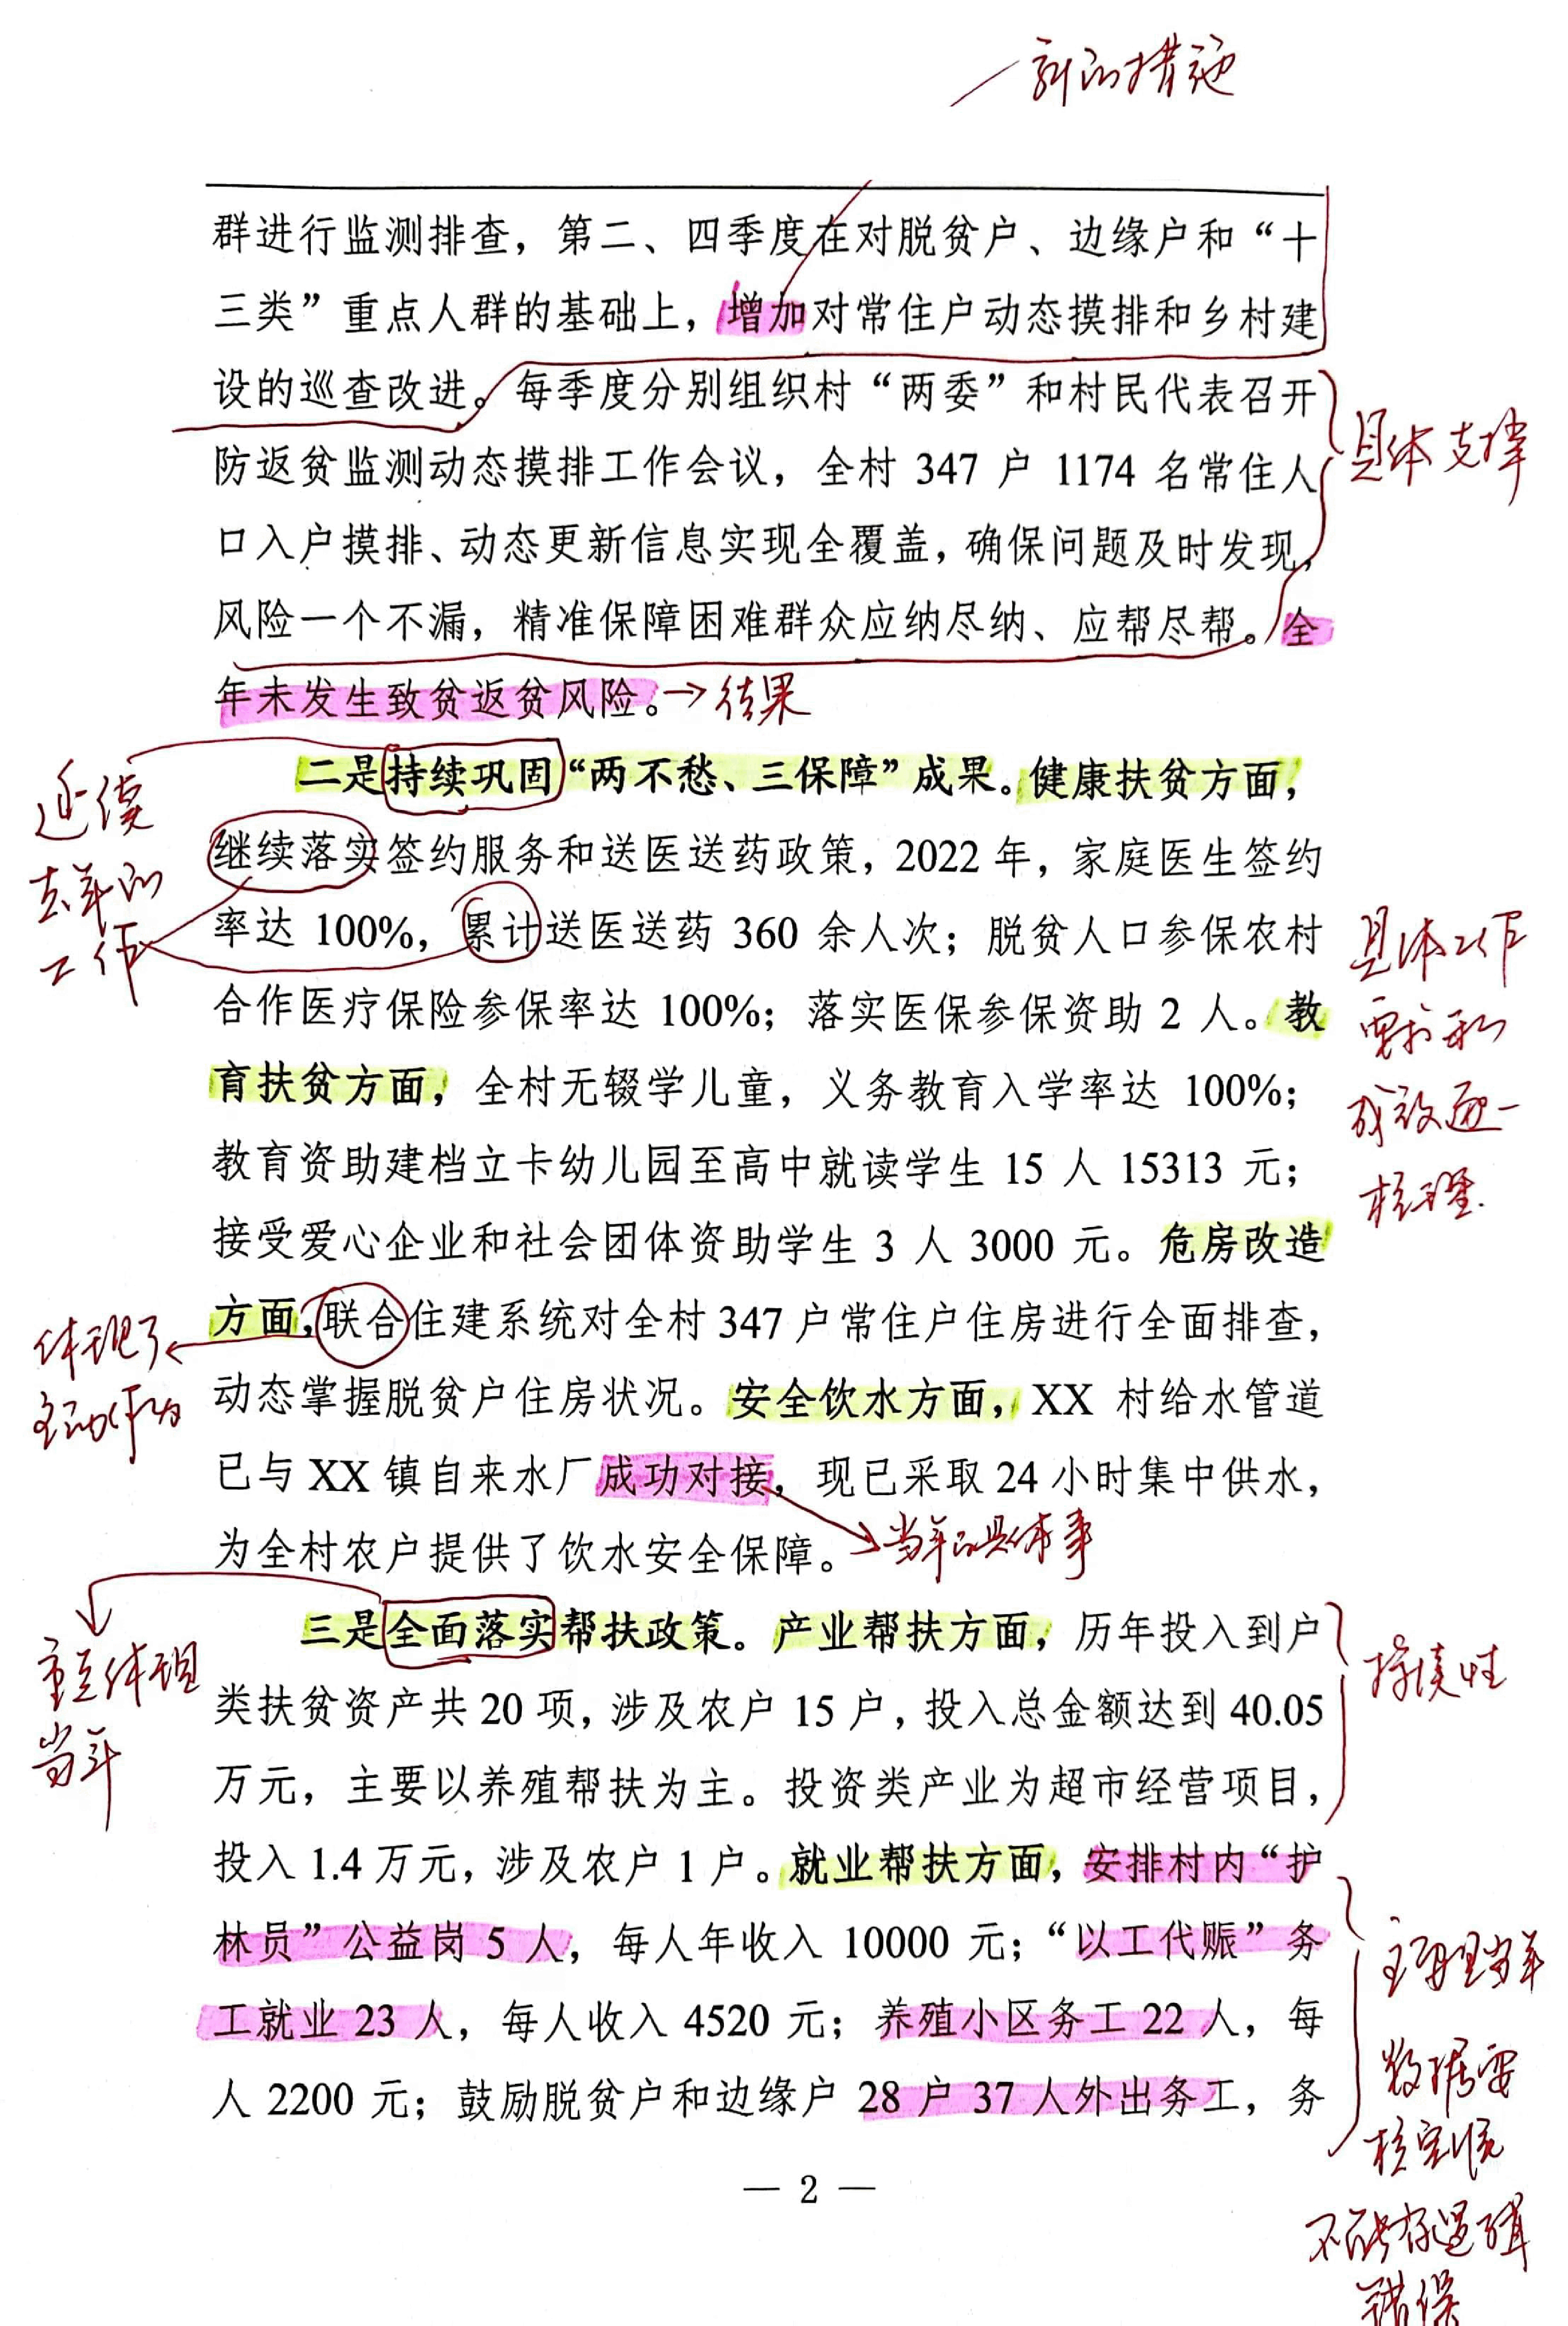 新的措施
群进行监测排查，第二、四季度在对脱贫户、边缘户和“十
三类”重点人群的基础上，增加对常住户动态摸排和乡村建
设的巡查改进。每季度分别组织村“两委”和村民代表召开
防返贫监测动态摸排工作会议，全村 347 户 1174 名常住人
具体支撑
口入户摸排、动态更新信息实现全覆盖，确保问题及时发现，
风险一个不漏，精准保障困难群众应纳尽纳、应帮尽帮。全
年未发生致贫返贫风险。→结果
二是持续巩固“两不愁、三保障”成果。健康扶贫方面，
延续
去年的
工作
继续落实签约服务和送医送药政策，2022 年，家庭医生签约
率达 100%，累计送医送药 360 余人次；脱贫人口参保农村
合作医疗保险参保率达 100%；落实医保参保资助 2 人。教
育扶贫方面，全村无辍学儿童，义务教育入学率达 100%；
具体工作
要求和
成效逐一
梳理.
教育资助建档立卡幼儿园至高中就读学生 15 人 15313 元；
接受爱心企业和社会团体资助学生 3 人 3000 元。危房改造
方面，联合住建系统对全村 347 户常住户住房进行全面排查，
体现了
主动作为
动态掌握脱贫户住房状况。安全饮水方面，XX 村给水管道
已与 XX 镇自来水厂成功对接，现已采取 24 小时集中供水，
为全村农户提供了饮水安全保障。
当年的具体事
三是全面落实帮扶政策。产业帮扶方面，历年投入到户
重点体现
当年
类扶贫资产共 20 项，涉及农户 15 户，投入总金额达到 40.05
持续性
万元，主要以养殖帮扶为主。投资类产业为超市经营项目，
投入 1.4 万元，涉及农户 1 户。就业帮扶方面，安排村内“护
林员”公益岗 5 人，每人年收入 10000 元；“以工代赈”务
工就业 23 人，每人收入 4520 元；养殖小区务工 22 人，每
人 2200 元；鼓励脱贫户和边缘户 28 户 37 人外出务工，务
当年
数据要
核实准
不能有逻辑
错误
— 2 —